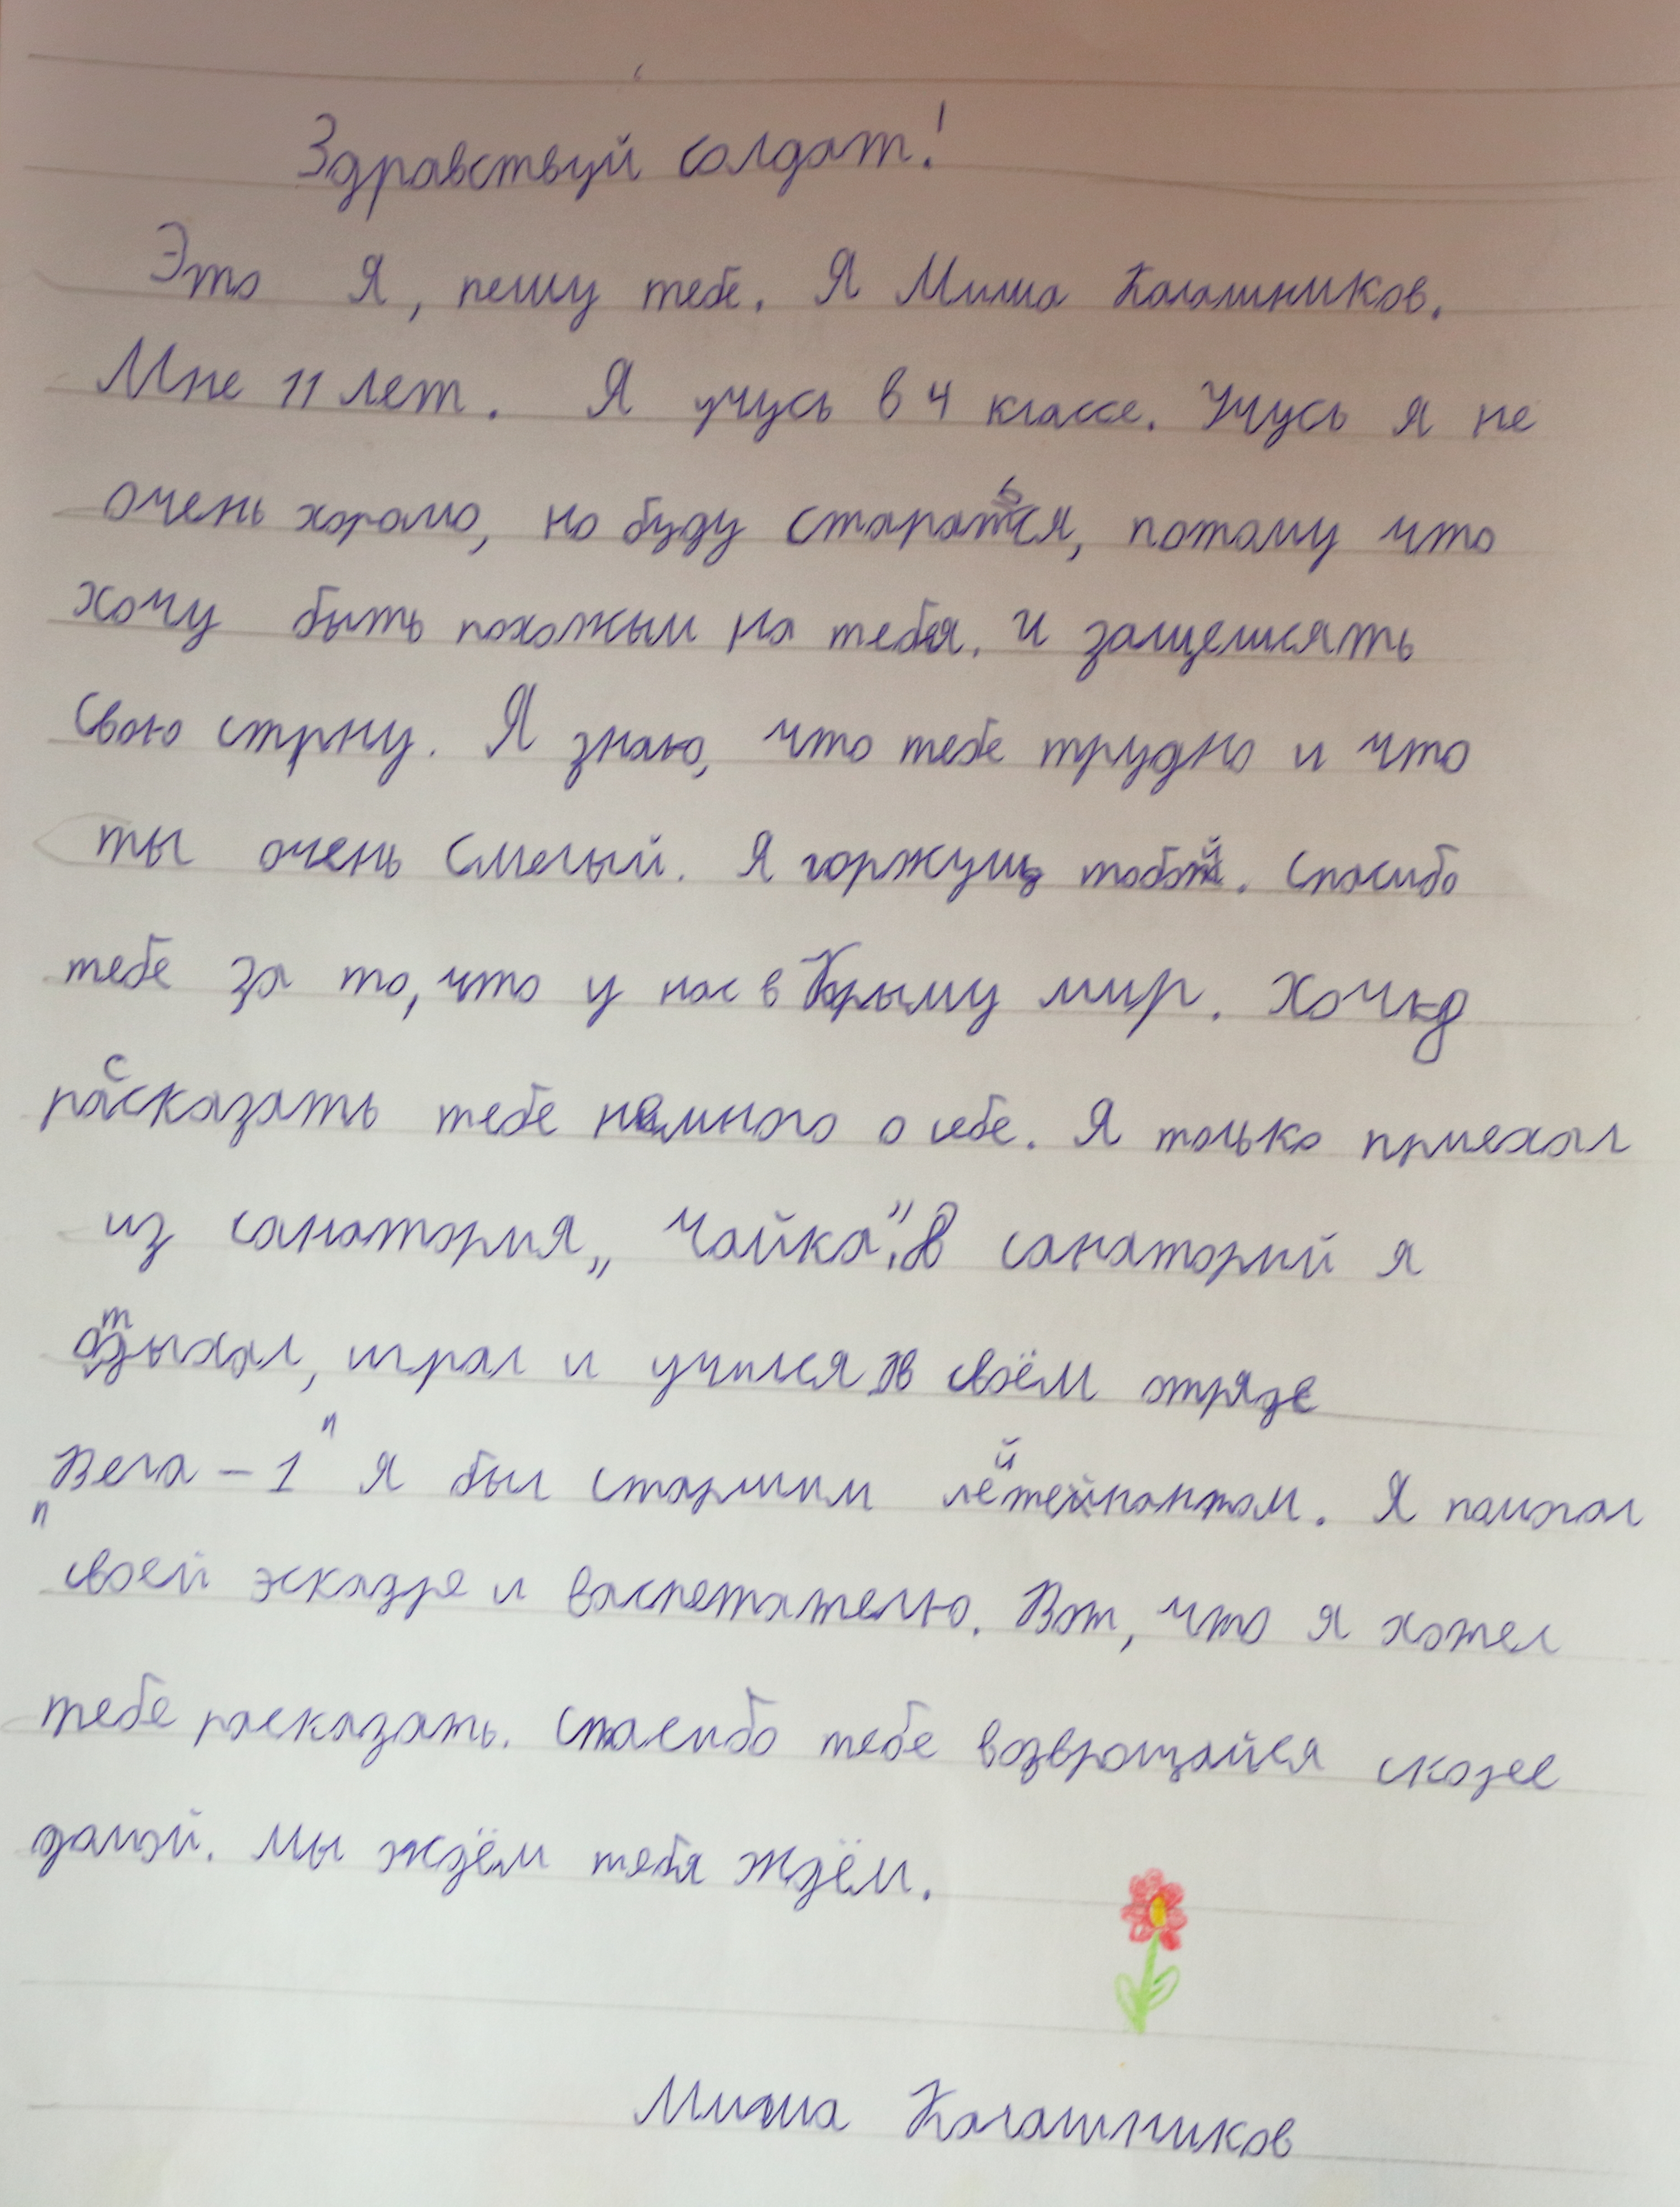 Здравствуй солдат!
Это Я, пешу тебе. Я Миша Калашников.
Мне 11 лет. Я учусь в 4 классе. Учусь я не
очень хорошо, но буду стараться, потому что
хочу быть похожым на тебя. и защешять
свою стрну. Я знаю, что тебе трудно и что
ты очень смелый. Я горжусь тобой. спасибо
тебе за то, что у нас в Крыму мир. Хочу
рассказать тебе немного о себе. Я только приехал
из санатория „Чайка". В санаторий я
отдыхал, играл и учился в своём отряде
"Вега - 1" я был старшим лётейнантом. Я помогал
своей эскадре и васпетателю. Вот, что я хотел
тебе расказать. спасибо тебе возвращайся скорее
домой. мы ждём тебя ждём.
Миша Калашников